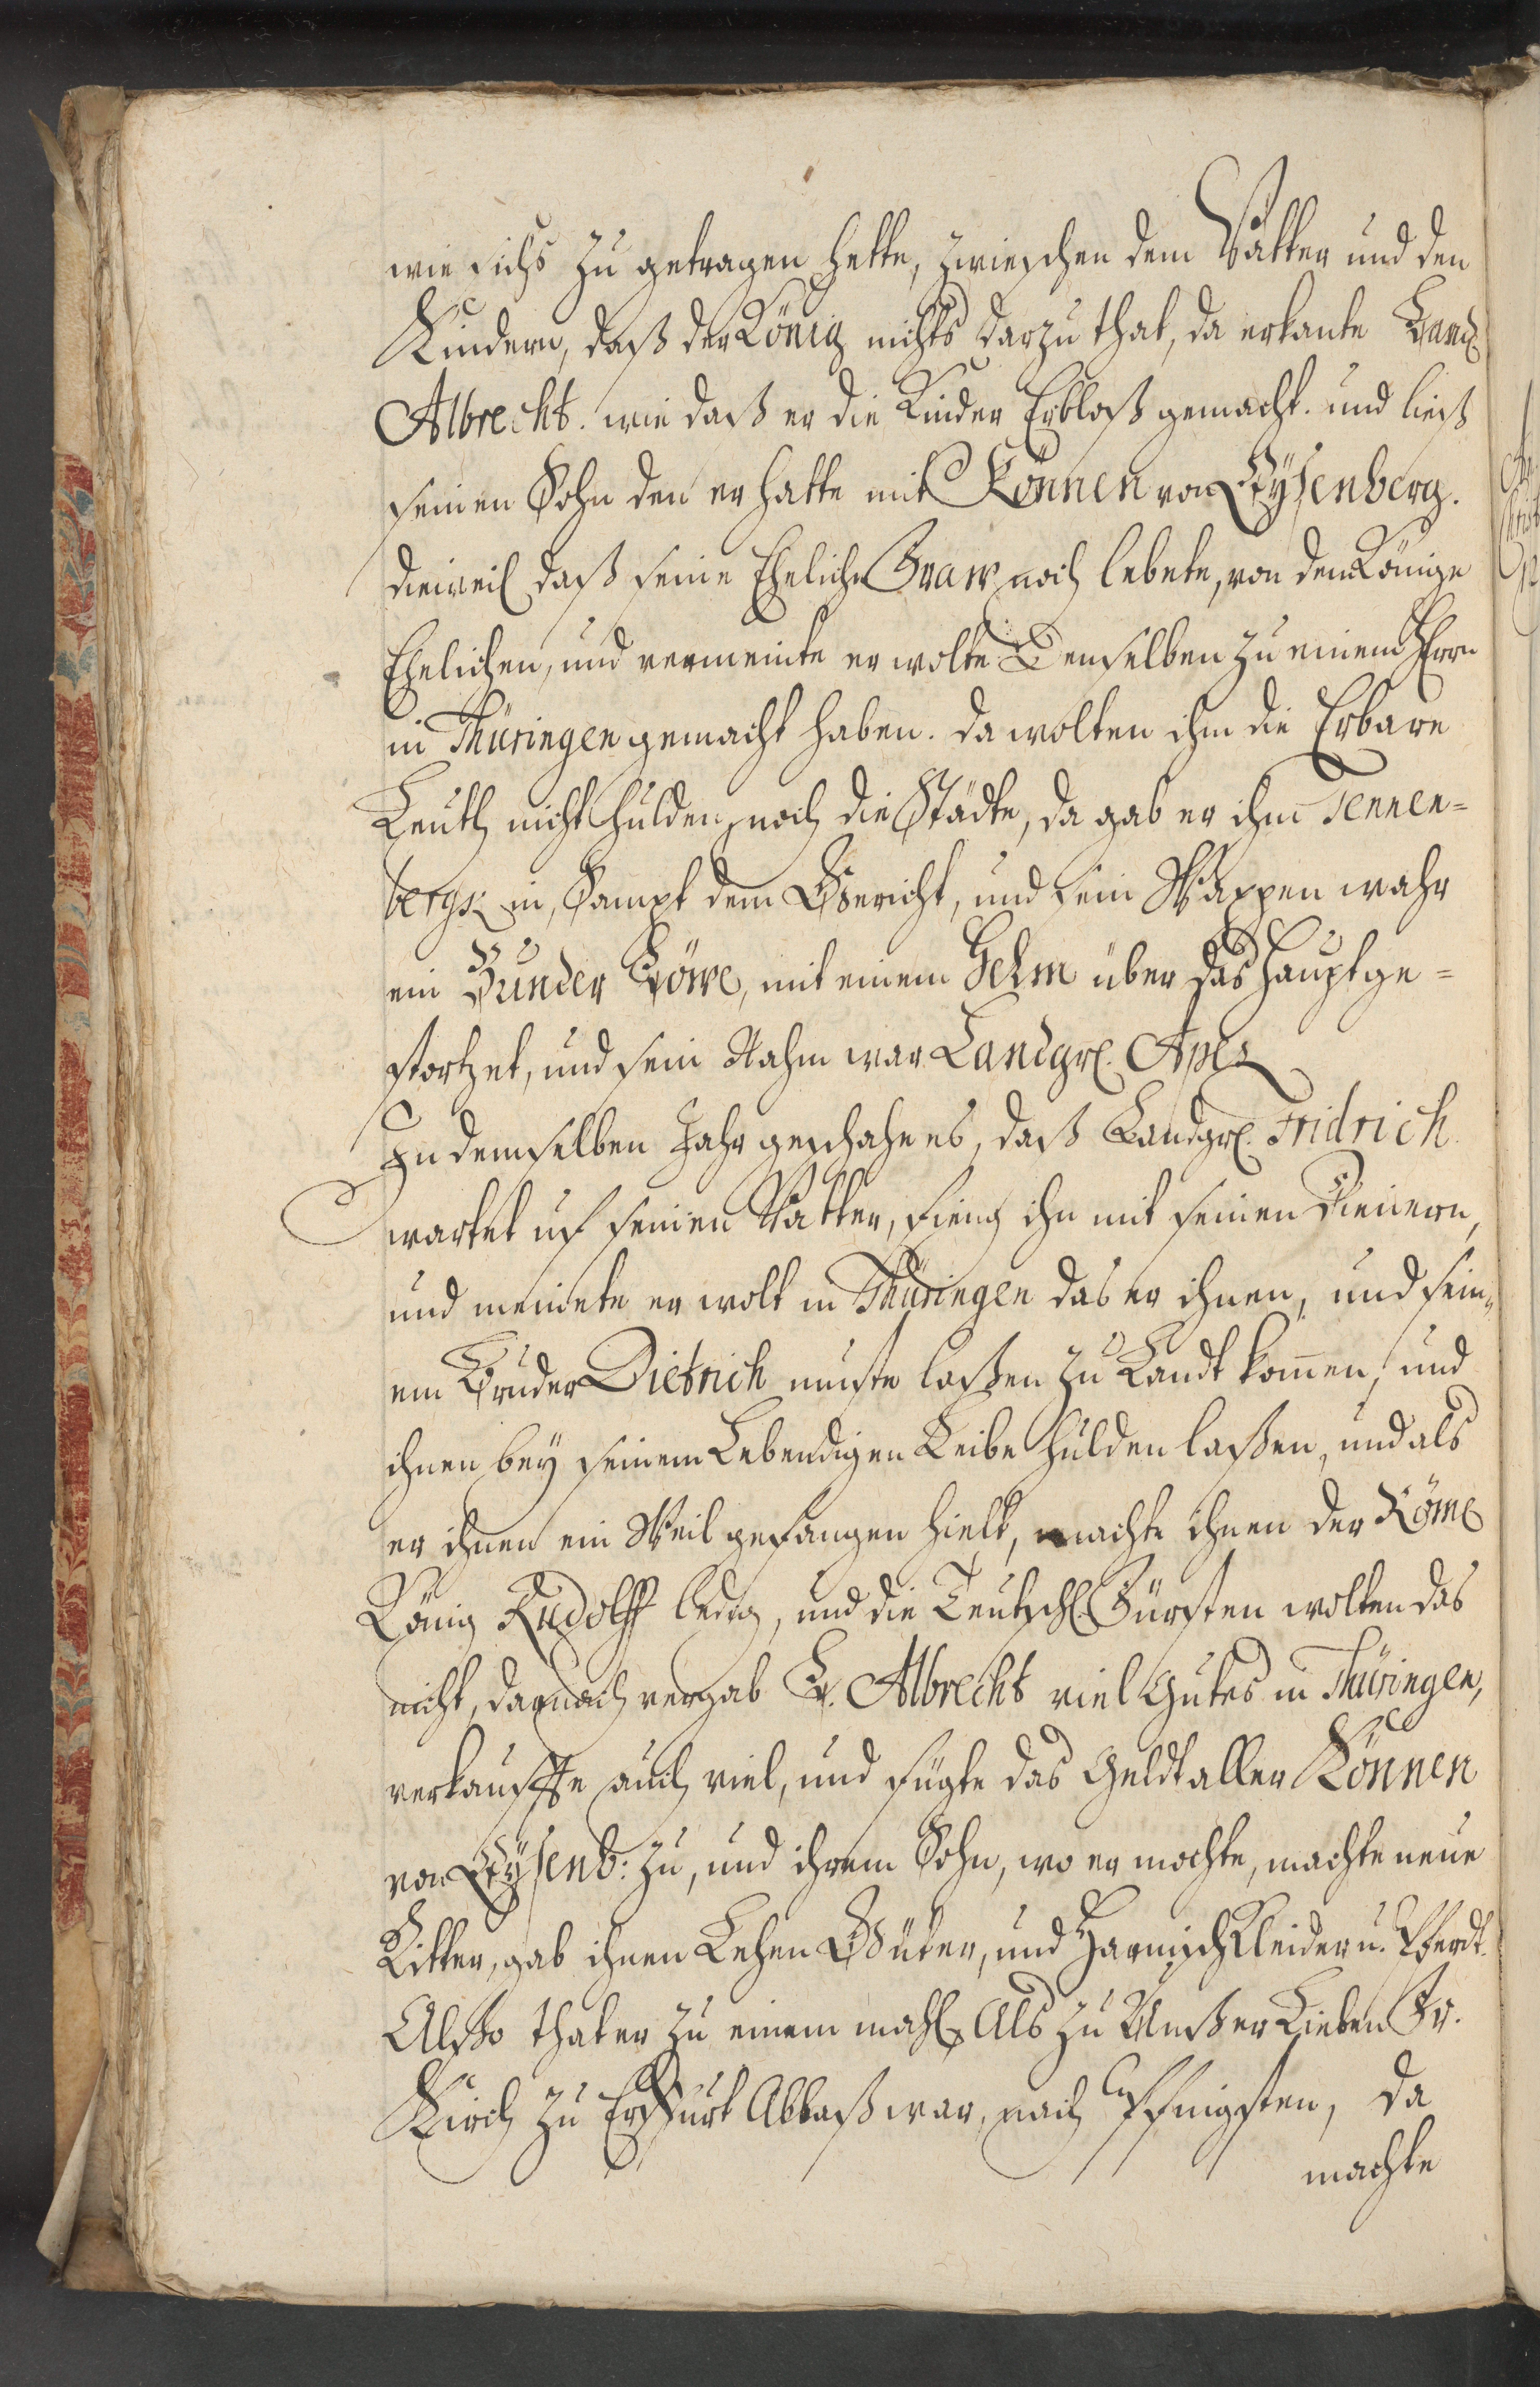 wie sichs zu getragen hette, zwischen dem Vatter und den
Kindern, daß der König nichts darzu that, da erkante Landg
Albrecht. wie daß er die Kinder Erbloß gemacht. und ließ
seinen Sohn den er hatte mit Können von Eÿsenberg.
dieweil daß seine Eheliche Fraw noch lebete, von dem Könige
Ehelichen, und vermeinte er wolte denselben zu einem Herrn
in Thüringen gemacht haben. da wolten ihm die Erbare
Leuth nicht hulden, noch die Städte, da gab er ihm Tennen=
bergk in, Sampt dem Gericht, und sein Wappen wahr
ein Bunder Löwe, mit einem Helm über das Haupt ge=
stortzet, und sein Nahm war Landgr. Apel
In demselben Jahr geschahe es, daß Landgr. Fridrich
wartet uf seinen Vatter, fieng ihn mit seinen Dienern,
und meinete er wolt in Thüringen das er ihnen, und sein,
em Bruder Dietrich muste laßen zu Landt komen, und
ihnen bey seinem Lebendigen Leibe hulden laßen, und als
er ihnen ein Weil gefangen hielt, machte ihnen der Röm
König Rudolff ledig, und die Teutsch Fürsten wolten das
nicht, darnach vergab L. Albrecht viel Gutes in Thüringen,
verkauffte auch viel, und fügte das Geldt aller Können
von Eÿsenb: zu, und ihrem Sohn, wo er mochte, machte neue
Ritter, gab ihnen Lehen Güter, und Harnisch Kleider u. Pferdt.
Alßo thater zu einem mahl Als zu Unßer Lieben Fr.
Kirch zu Erffurt Ablaß war, nach Pfingsten, da
machte